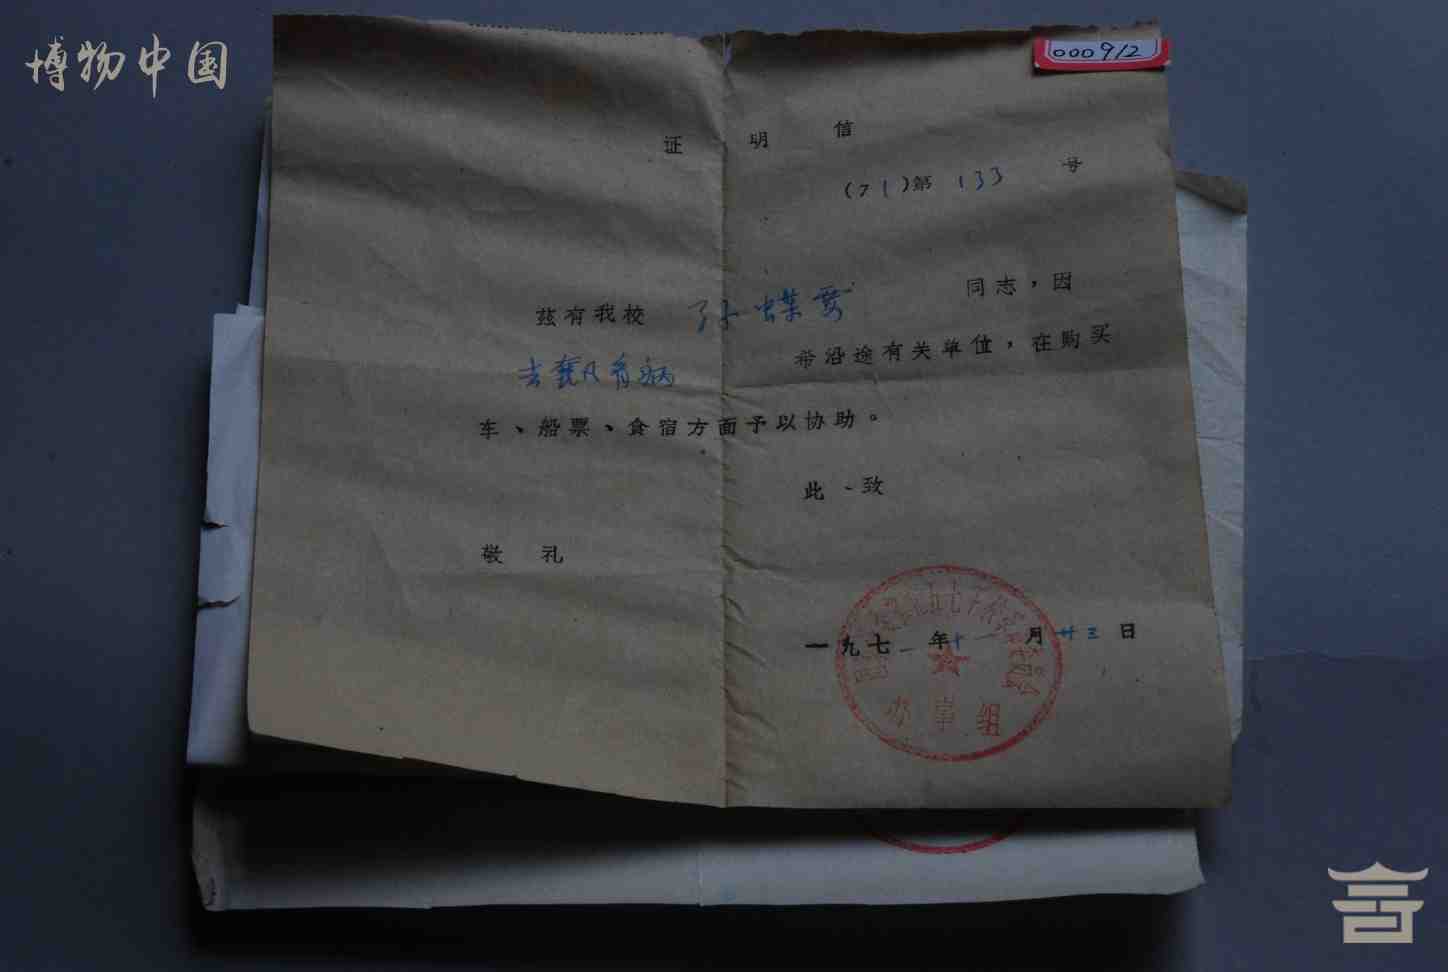 博物中国
000912
证明信
(71)第133号
兹有我校 孙蝶 同志，因
去 看病 希沿途有关单位，在购买
车、船票、食宿方面予以协助。
此、致
敬礼
一九七一年十一月廿三日
五七干校
办事组